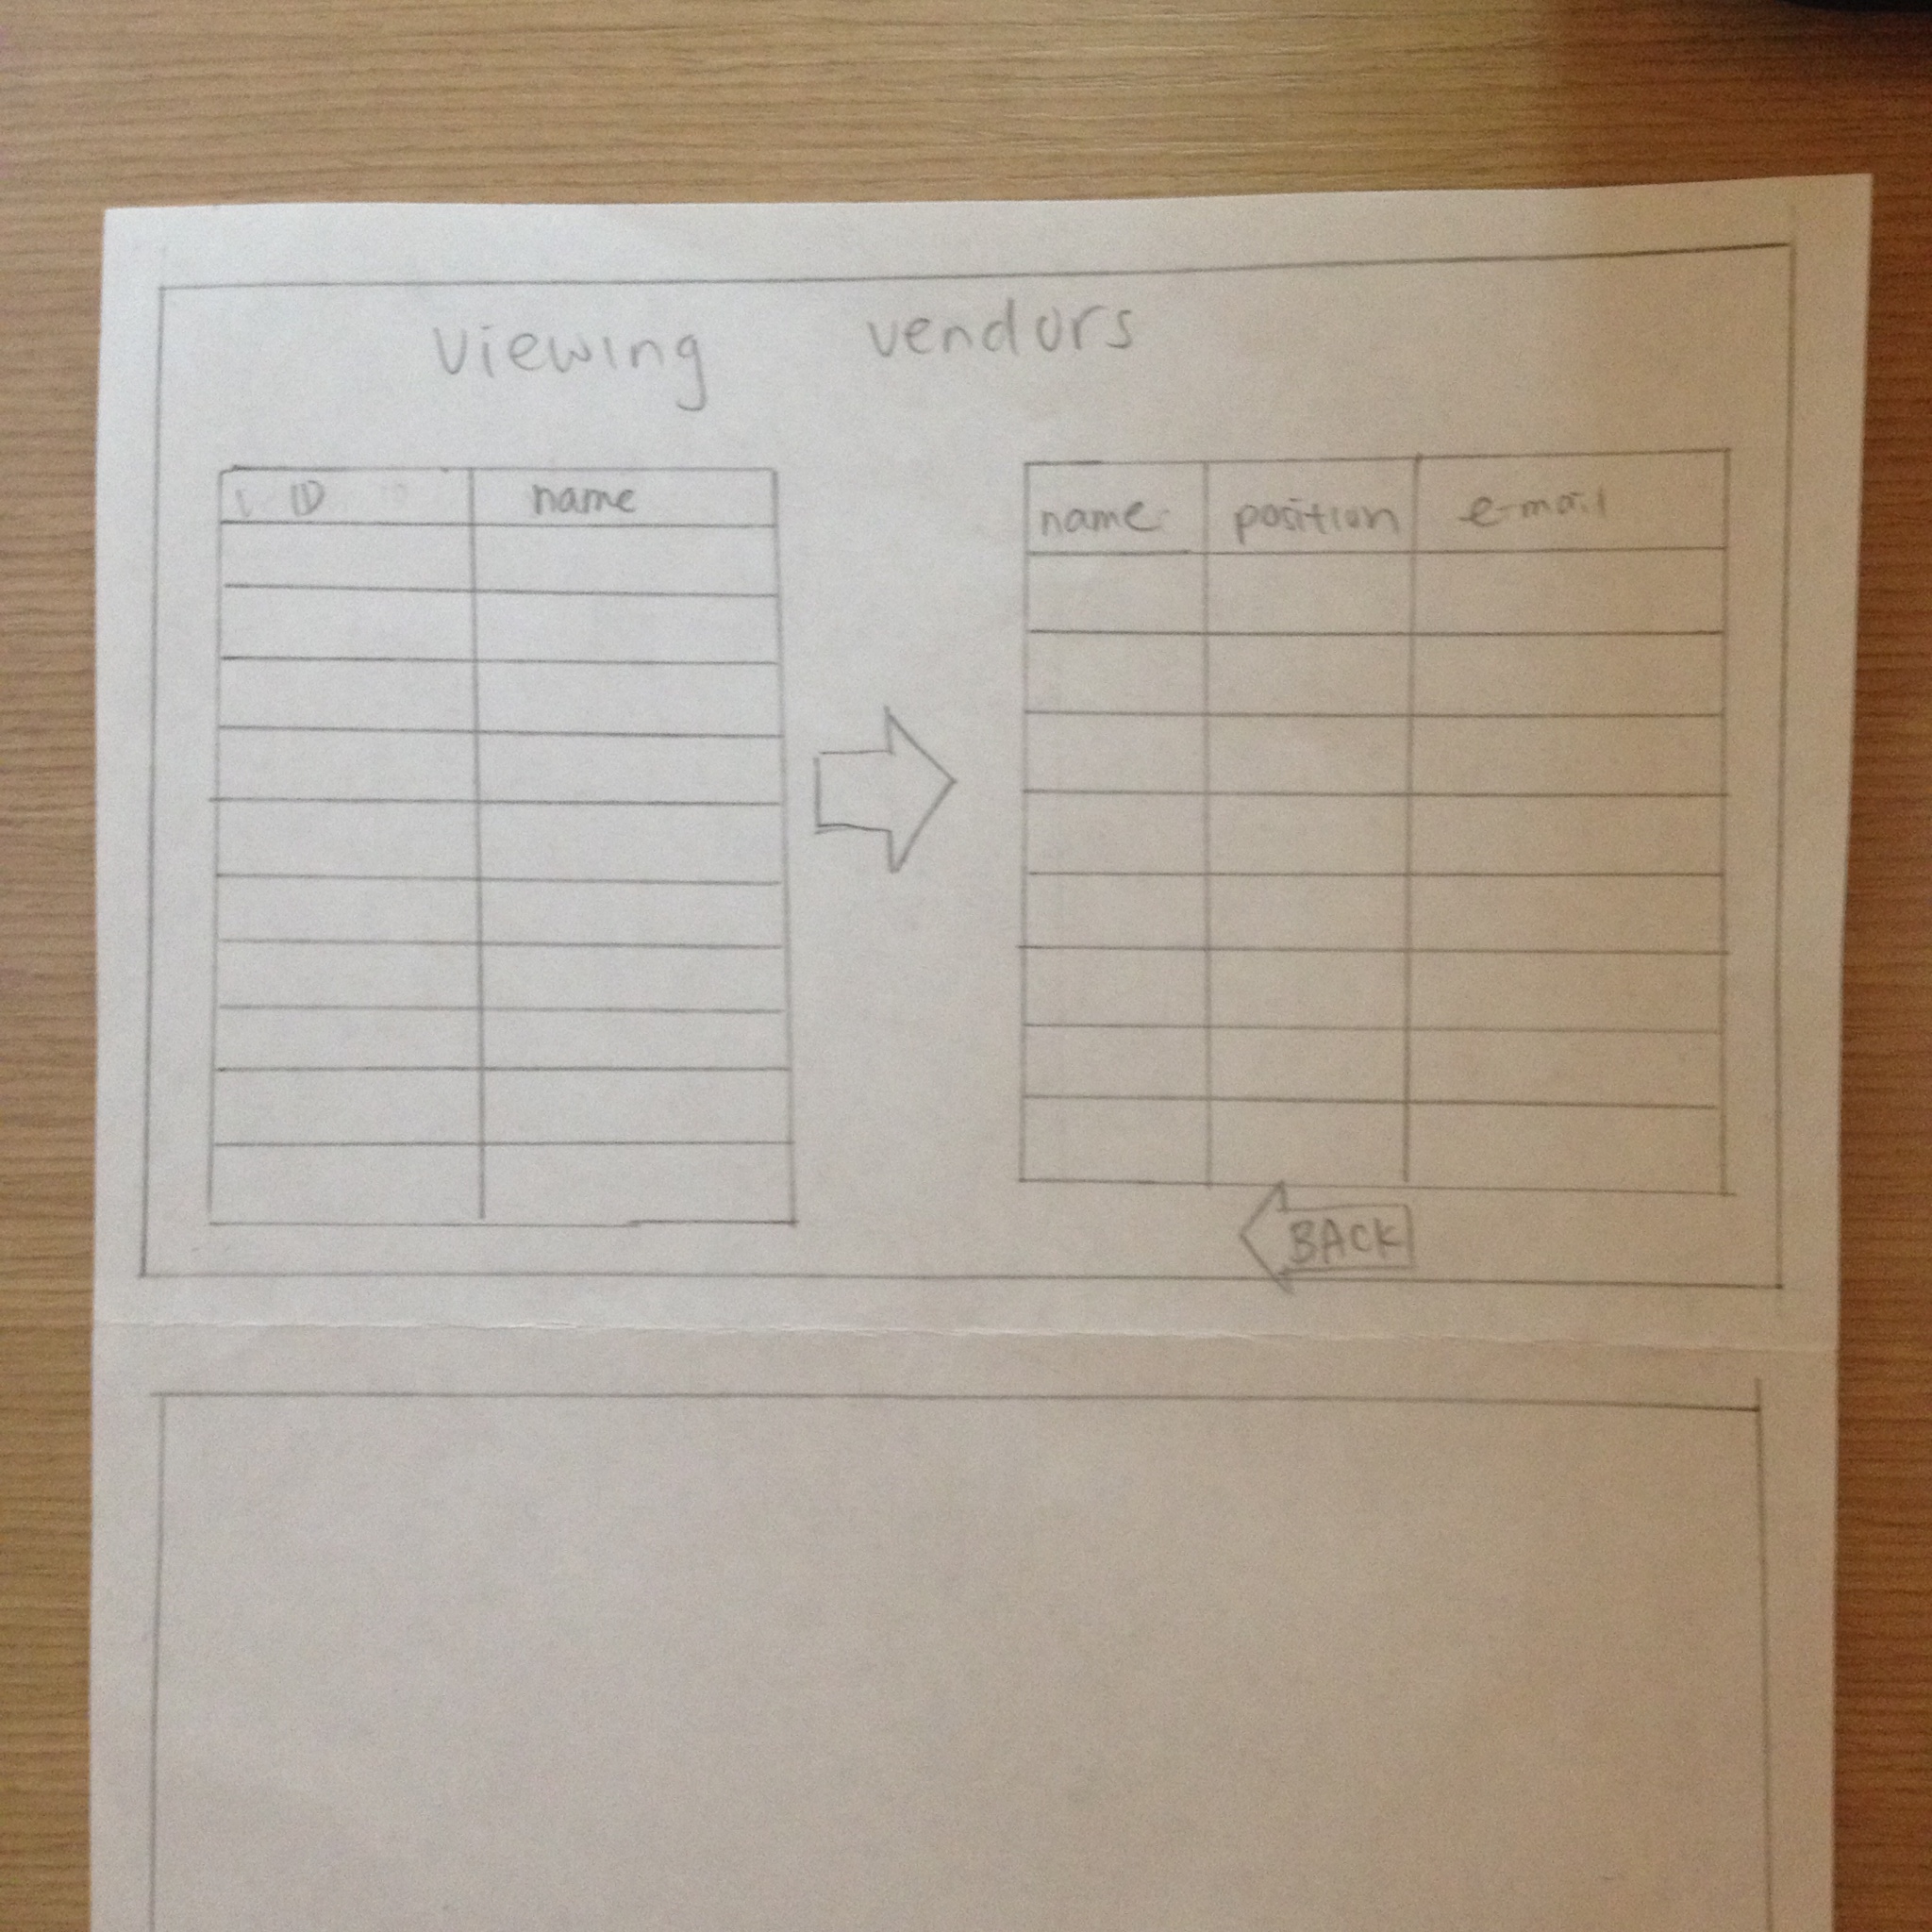 viewing vendors
ID name
name position e-mail
BACK